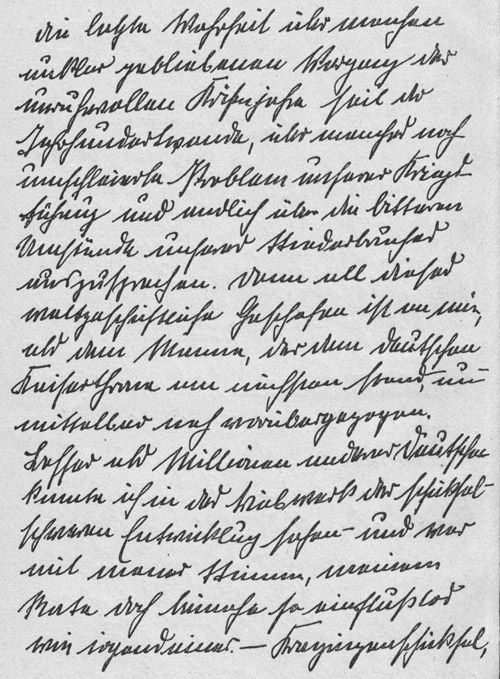 die letzte Wahrheit über manchen
unklar gebliebenen Vorgang der
unruhevollen Krisenjahre seit der
Jahrhundertwende, über manches noch
umschleierte Problem unserer Kriegs-
führung und endlich über die bitteren
Umstände unseres Niederbruches
auszusprechen. Denn all dieses
weltgeschichtliche Geschehen ist an mir,
als dem Manne, der dem deutschen
Kaiserthrone am nächsten stand, un-
mittelbar nah vorübergezogen.
Besser als Millionen anderer Deutscher
konnte ich in das Triebwerk der schicksal-
schweren Entwicklung sehen – und war
mit meiner Stimme, meinem
Rate doch beinahe so einflußlos
wie irgendeiner. – Kronprinzenschicksal,